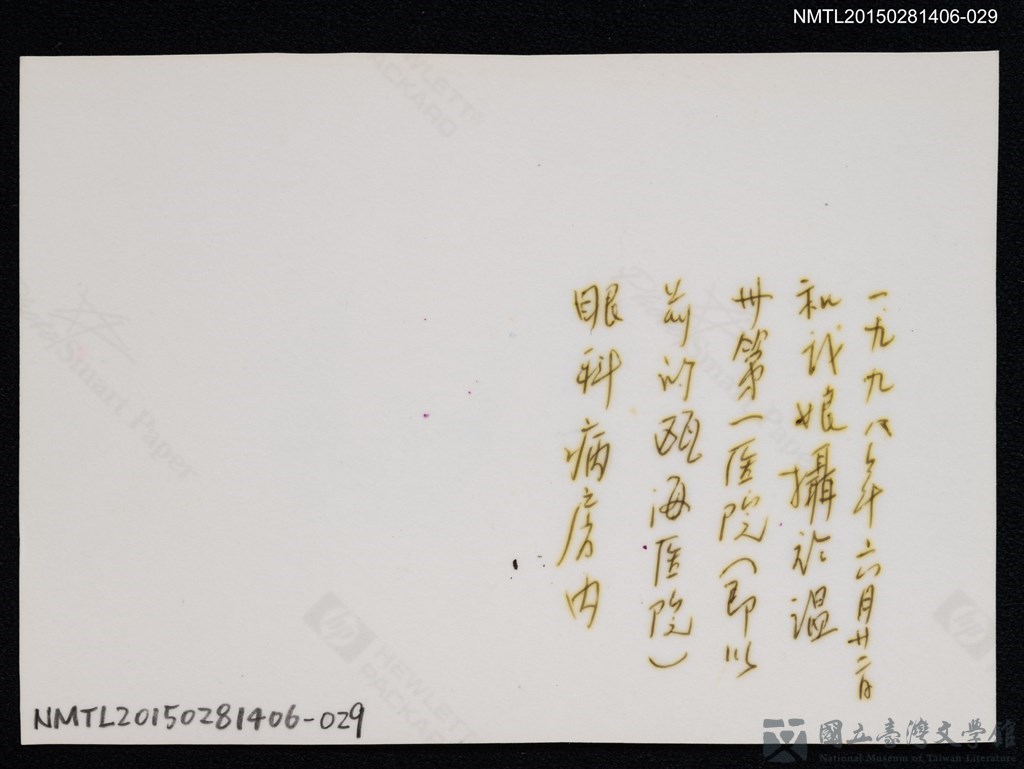 NMTL20150281406-029
一九九八年六月廿二日
和我娘攝於溫
州第一医院（即以
前的甌海医院）
眼科病房内
NMTL20150281406-029
HEWLETT®
PACKARD
Smart Paper
hp HEWLETT
PACKARD
國立臺灣文學館
National Museum of Taiwan Literature